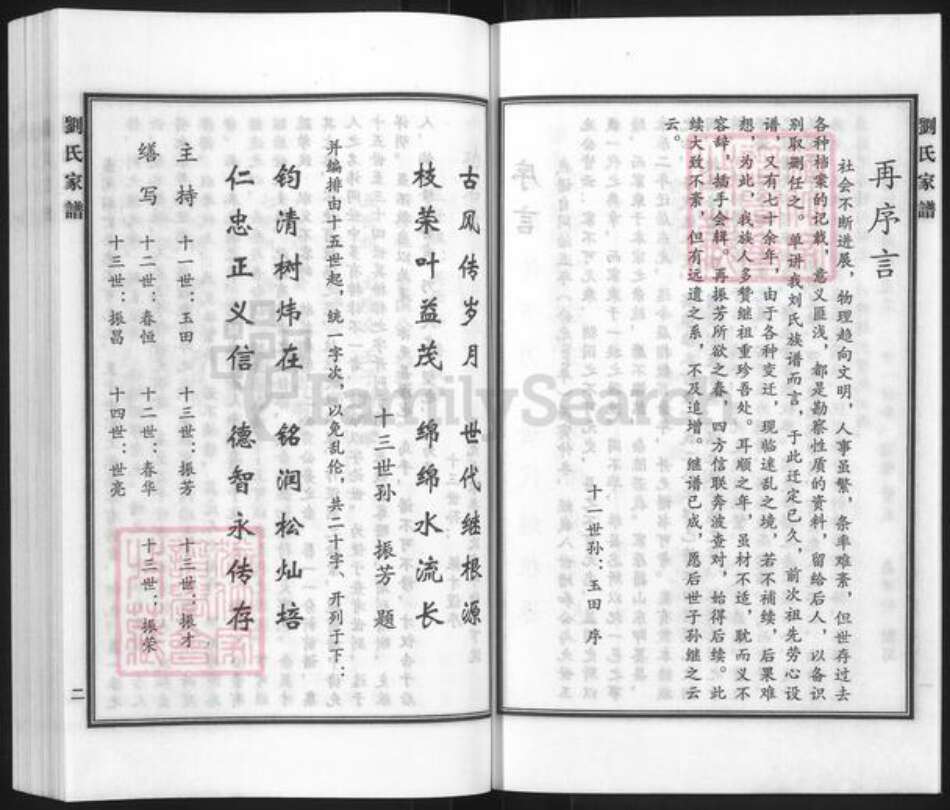 劉氏家譜
再序言
社会不断进展，物理趋向文明，人事虽繁，条率难紊，但世存过去
各种档案的记载，意义匪浅，都是勘察性质的资料，留给后人，以备识
别取删任之。单讲我刘氏族谱而言，于此迁定已久，前次祖先劳心设
谱，又有七十余年，由于各种变迁，现临迷乱之境，若不补续，后果难
想，为此，我族人多赞继祖重珍吾处。耳顺之年，虽材不适，耽而义不
容辞，插手会辑。再振芳所欲之春，四方信联奔波查对，始得后续。此
续大致不紊，但有远遗之系，不及追增。继谱已成，愿后世子孙继之云
云。
十一世孙：玉田 序
古风传岁月 世代继根源
枝荣叶益茂 绵绵水流长
十三世孙 振芳 题
并编排由十五世起，统一字次，以免乱伦，共二十字、开列于下：
钧清树炜在 铭润松灿培
仁忠正义信 德智永传存
主持 十一世：玉田 十三世：振芳 十三世：振才
缮写 十二世：春恒 十二世：春华 十三世：振荣
十三世：振昌 十四世：世亮
劉氏家譜
二
FamilySearch